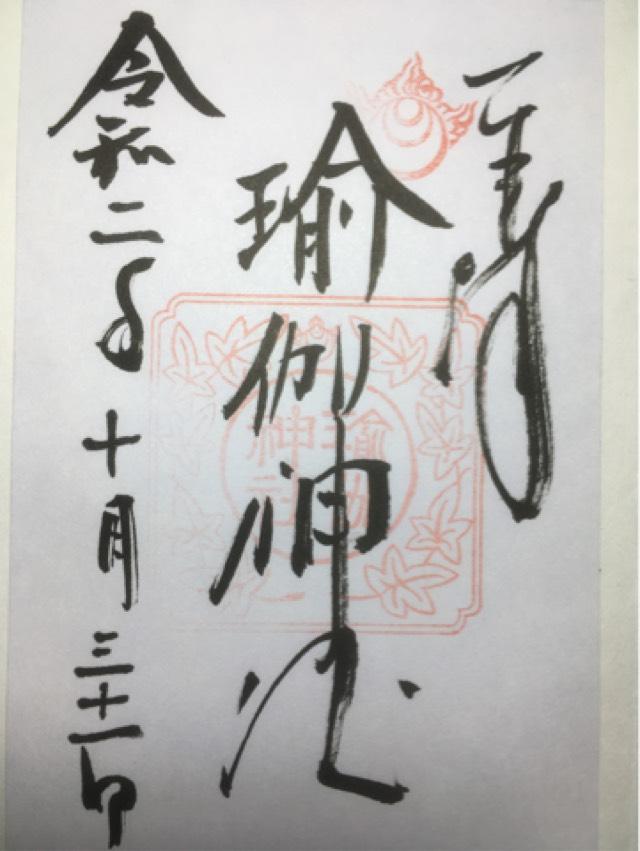 奉拝
瑜伽神社
瑜伽
神社
令和二年十月三十一日